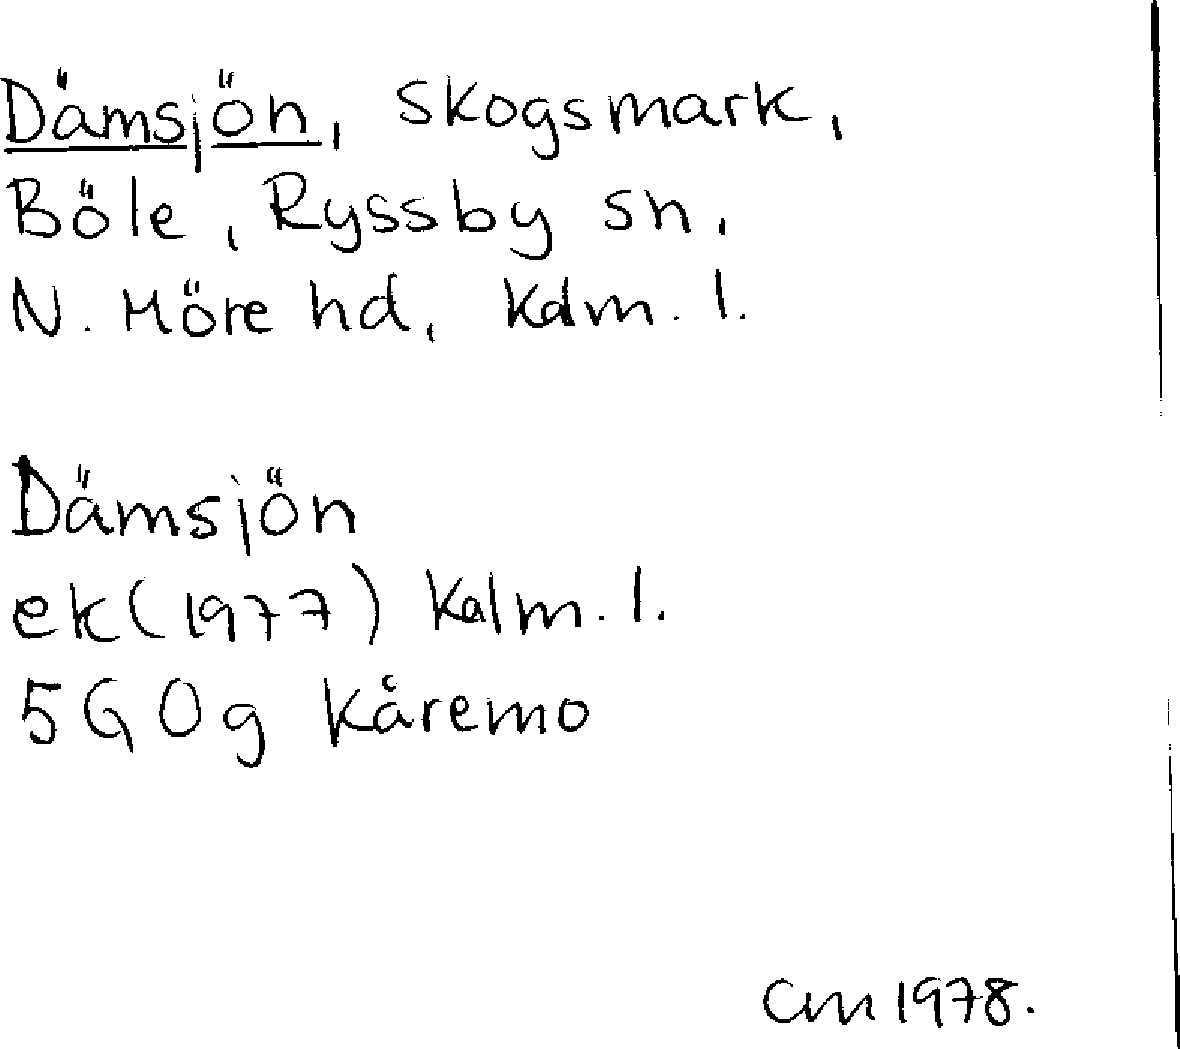 Dämsjön, skogsmark,
Böle, Ryssby sn,
N. Möre hd, Kalm. l.
Dämsjön
ek (1977) Kalm. l.
5G0g Kåremo
CM 1978.